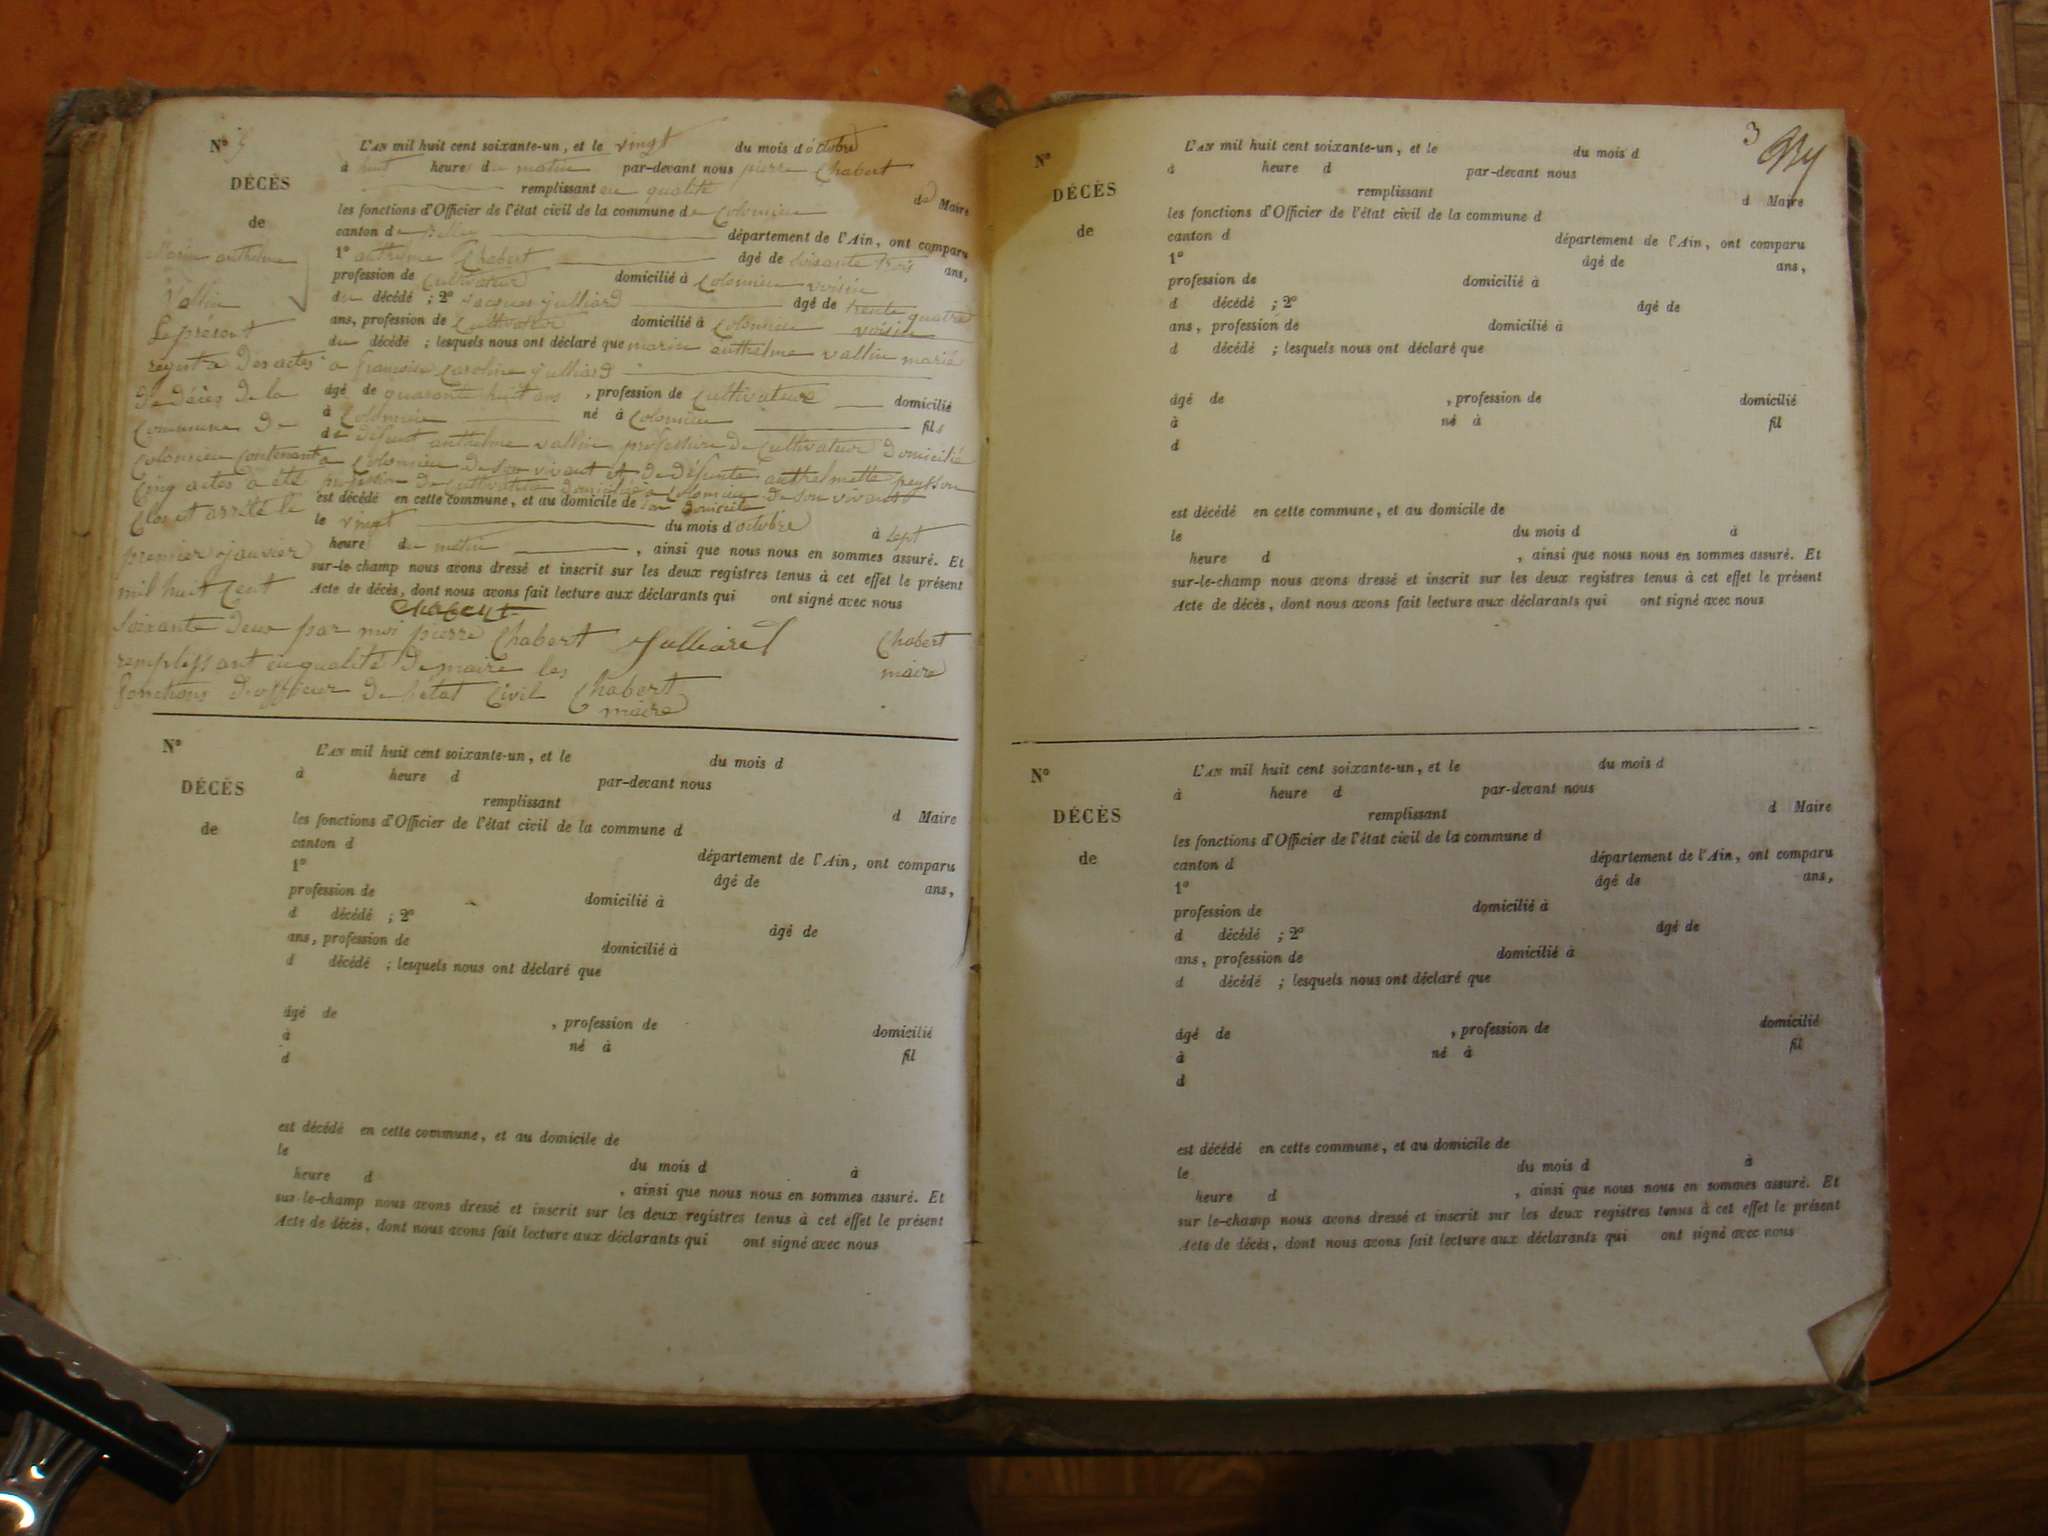 Nº 5
DÉCÈS
de
Marin anthelme
Vallin
L'AN mil huit cent soixante-un, et le vingt du mois d'octobre
à huit heure du matin par-devant nous pierre Chabert
remplissant en qualité de Maire
les fonctions d'Officier de l'état civil de la commune de Colomieu
canton de Belley département de l'Ain, ont comparu
1º anthelme Chabert âgé de soixante trois ans,
profession de Cultivateur domicilié à Colomieu voisin
du décédé ; 2º jacques julliard âgé de trente quatre
ans, profession de Cultivateur domicilié à Colomieu voisin
du décédé ; lesquels nous ont déclaré que marin anthelme vallin marié
a françoise Caroline julliard
âgé de quarante huit ans , profession de Cultivateur domicilié
à Colomieu né à Colomieu fils
de défunt anthelme vallin profession de Cultivateur Domicilié
a Colomieu de son vivant et de défunte anthelmette peysson
profession de Cultivatrice domiciliée a Colomieu de son vivant
est décédé en cette commune, et au domicile de son domicile
le vingt du mois d'octobre à sept
heure du matin , ainsi que nous nous en sommes assuré. Et
sur-le-champ nous avons dressé et inscrit sur les deux registres tenus à cet effet le présent
Acte de décès, dont nous avons fait lecture aux déclarants qui ont signé avec nous
Chabert
Julliard
Chabert
maire
Le présent
registre des actes
de décès de la
Commune de
Colomieu Contenant
Cinq actes a été
Clos et arrêté le
premier janvier
mil huit Cent
soixante deux par moi pierre Chabert
remplissant en qualité de maire les
fonctions d'officier de l'état Civil Chabert
maire
Nº
DÉCÈS
de
L'AN mil huit cent soixante-un, et le du mois d
à heure d par-devant nous
remplissant d Maire
les fonctions d'Officier de l'état civil de la commune d
canton d département de l'Ain, ont comparu
1º âgé de ans,
profession de domicilié à
d décédé ; 2º âgé de
ans, profession de domicilié à
d décédé ; lesquels nous ont déclaré que
âgé de , profession de domicilié
à né à fil
d
est décédé en cette commune, et au domicile de
le du mois d à
heure d , ainsi que nous nous en sommes assuré. Et
sur-le-champ nous avons dressé et inscrit sur les deux registres tenus à cet effet le présent
Acte de décès, dont nous avons fait lecture aux déclarants qui ont signé avec nous
3
Nº
DÉCÈS
de
L'AN mil huit cent soixante-un, et le du mois d
à heure d par-devant nous
remplissant d Maire
les fonctions d'Officier de l'état civil de la commune d
canton d département de l'Ain, ont comparu
1º âgé de ans,
profession de domicilié à
d décédé ; 2º âgé de
ans, profession de domicilié à
d décédé ; lesquels nous ont déclaré que
âgé de , profession de domicilié
à né à fil
d
est décédé en cette commune, et au domicile de
le du mois d à
heure d , ainsi que nous nous en sommes assuré. Et
sur-le-champ nous avons dressé et inscrit sur les deux registres tenus à cet effet le présent
Acte de décès, dont nous avons fait lecture aux déclarants qui ont signé avec nous
Nº
DÉCÈS
de
L'AN mil huit cent soixante-un, et le du mois d
à heure d par-devant nous
remplissant d Maire
les fonctions d'Officier de l'état civil de la commune d
canton d département de l'Ain, ont comparu
1º âgé de ans,
profession de domicilié à
d décédé ; 2º âgé de
ans, profession de domicilié à
d décédé ; lesquels nous ont déclaré que
âgé de , profession de domicilié
à né à fil
d
est décédé en cette commune, et au domicile de
le du mois d à
heure d , ainsi que nous nous en sommes assuré. Et
sur le-champ nous avons dressé et inscrit sur les deux registres tenus à cet effet le présent
Acte de décès, dont nous avons fait lecture aux déclarants qui ont signé avec nous